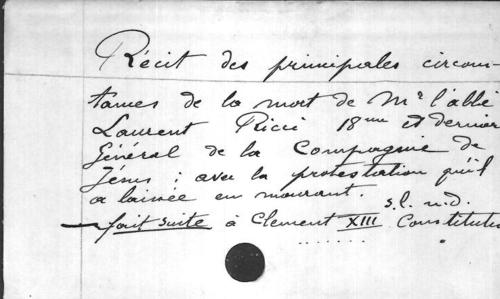 Récit des principales circons-
tances de la mort de Mr l'abbé
Laurent Ricci 18me et dernier
Général de la Compagnie de
Jésus ; avec la protestation qu'il
a laissée en mourant. s.l. n.d.
fait suite à Clement XIII Constitutio